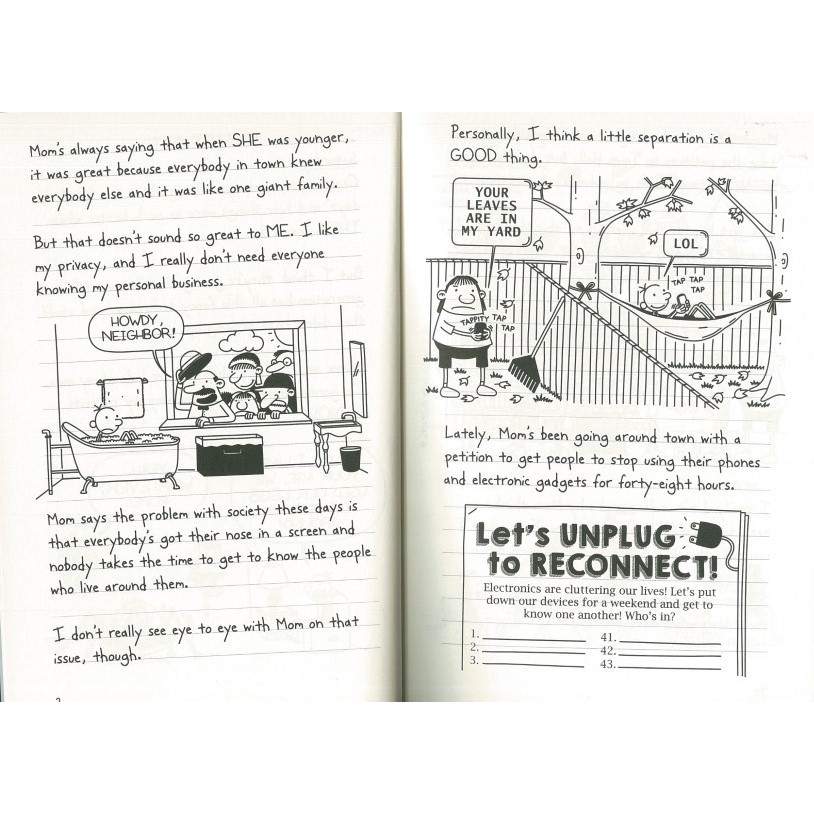 Mom's always saying that when SHE was younger,
it was great because everybody in town knew
everybody else and it was like one giant family.
But that doesn't sound so great to ME. I like
my privacy, and I really don't need everyone
knowing my personal business.
HOWDY,
NEIGHBOR!
Mom says the problem with society these days is
that everybody's got their nose in a screen and
nobody takes the time to get to know the people
who live around them.
I don't really see eye to eye with Mom on that
issue, though.
Personally, I think a little separation is a
GOOD thing.
YOUR
LEAVES
ARE IN
MY YARD
LOL
TAP TAP
TAP
TAPPITY TAP
TAP
Lately, Mom's been going around town with a
petition to get people to stop using their phones
and electronic gadgets for forty-eight hours.
Let's UNPLUG
to RECONNECT!
Electronics are cluttering our lives! Let's put
down our devices for a weekend and get to
know one another! Who's in?
1.
2.
3.
41.
42.
43.